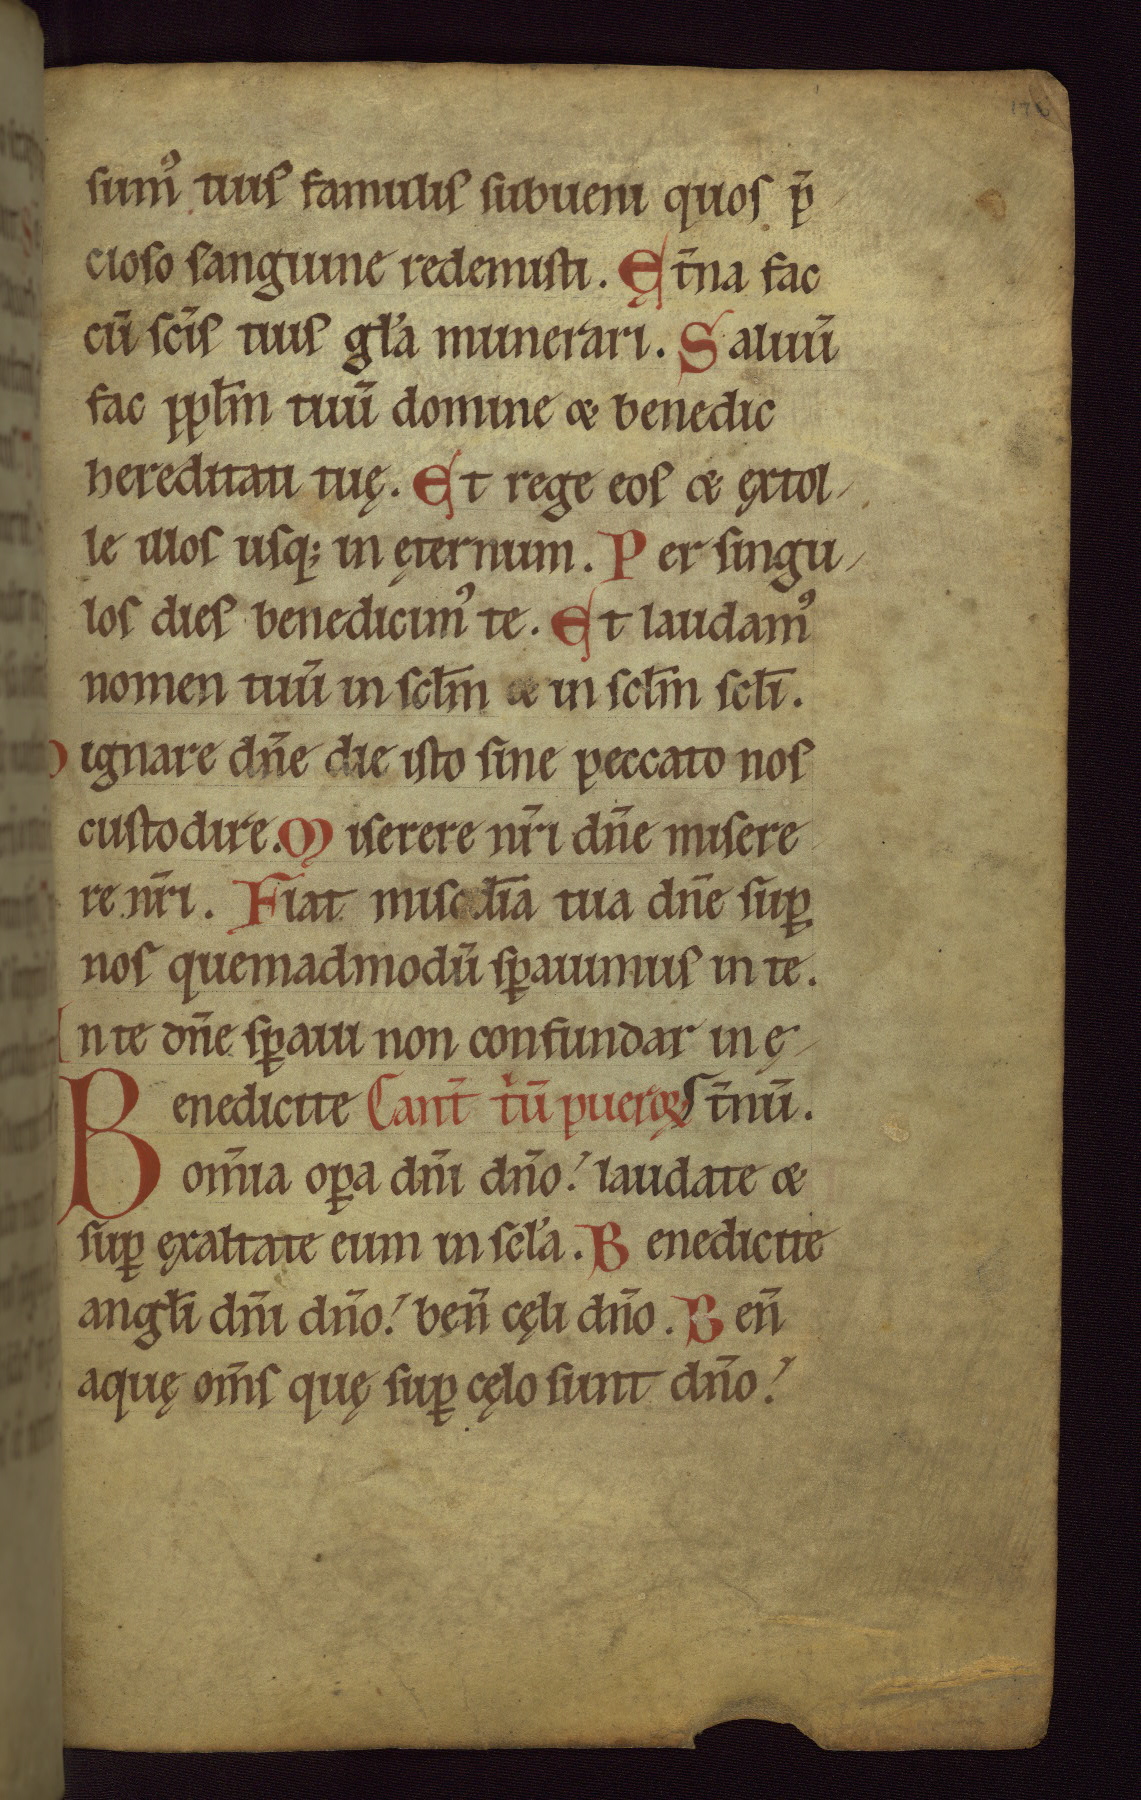 176
sum᾽ tuis famulis subueni quos p̄
cioso sanguine redemisti. Ęt̄na fac
cū sc̄is tuis gl̓a munerari. Saluū
fac ppl̄m tuū domine & benedic
hereditati tuę. Et rege eos & ęxtol-
le illos usq; in ęternum. Per singu-
los dies benedicim᾽ te. Et laudam᾽
nomen tuū in scl̄m & in scl̄m scl̄i.
Dignare dn̄e die isto sine peccato nos
custodire. Miserere nr̄i dn̄e misere
re nr̄i. Fiat misc̄dia tua dn̄e suꝑ
nos quemadmodū sꝑauimus in te.
In te dn̄e sꝑaui non confundar in ę-
Benedicite Cant̄ t̓ū pueroꝝ t̄nū.
om̄ia oꝑa dn̄i dn̄o! laudate &
suꝑ ęxaltate eum in scl̓a. Benedicite
angl̄i dn̄i dn̄o! ben̄ cęli dn̄o. Ben̄
aquę om̄s quę suꝑ cęlo sunt dn̄o!